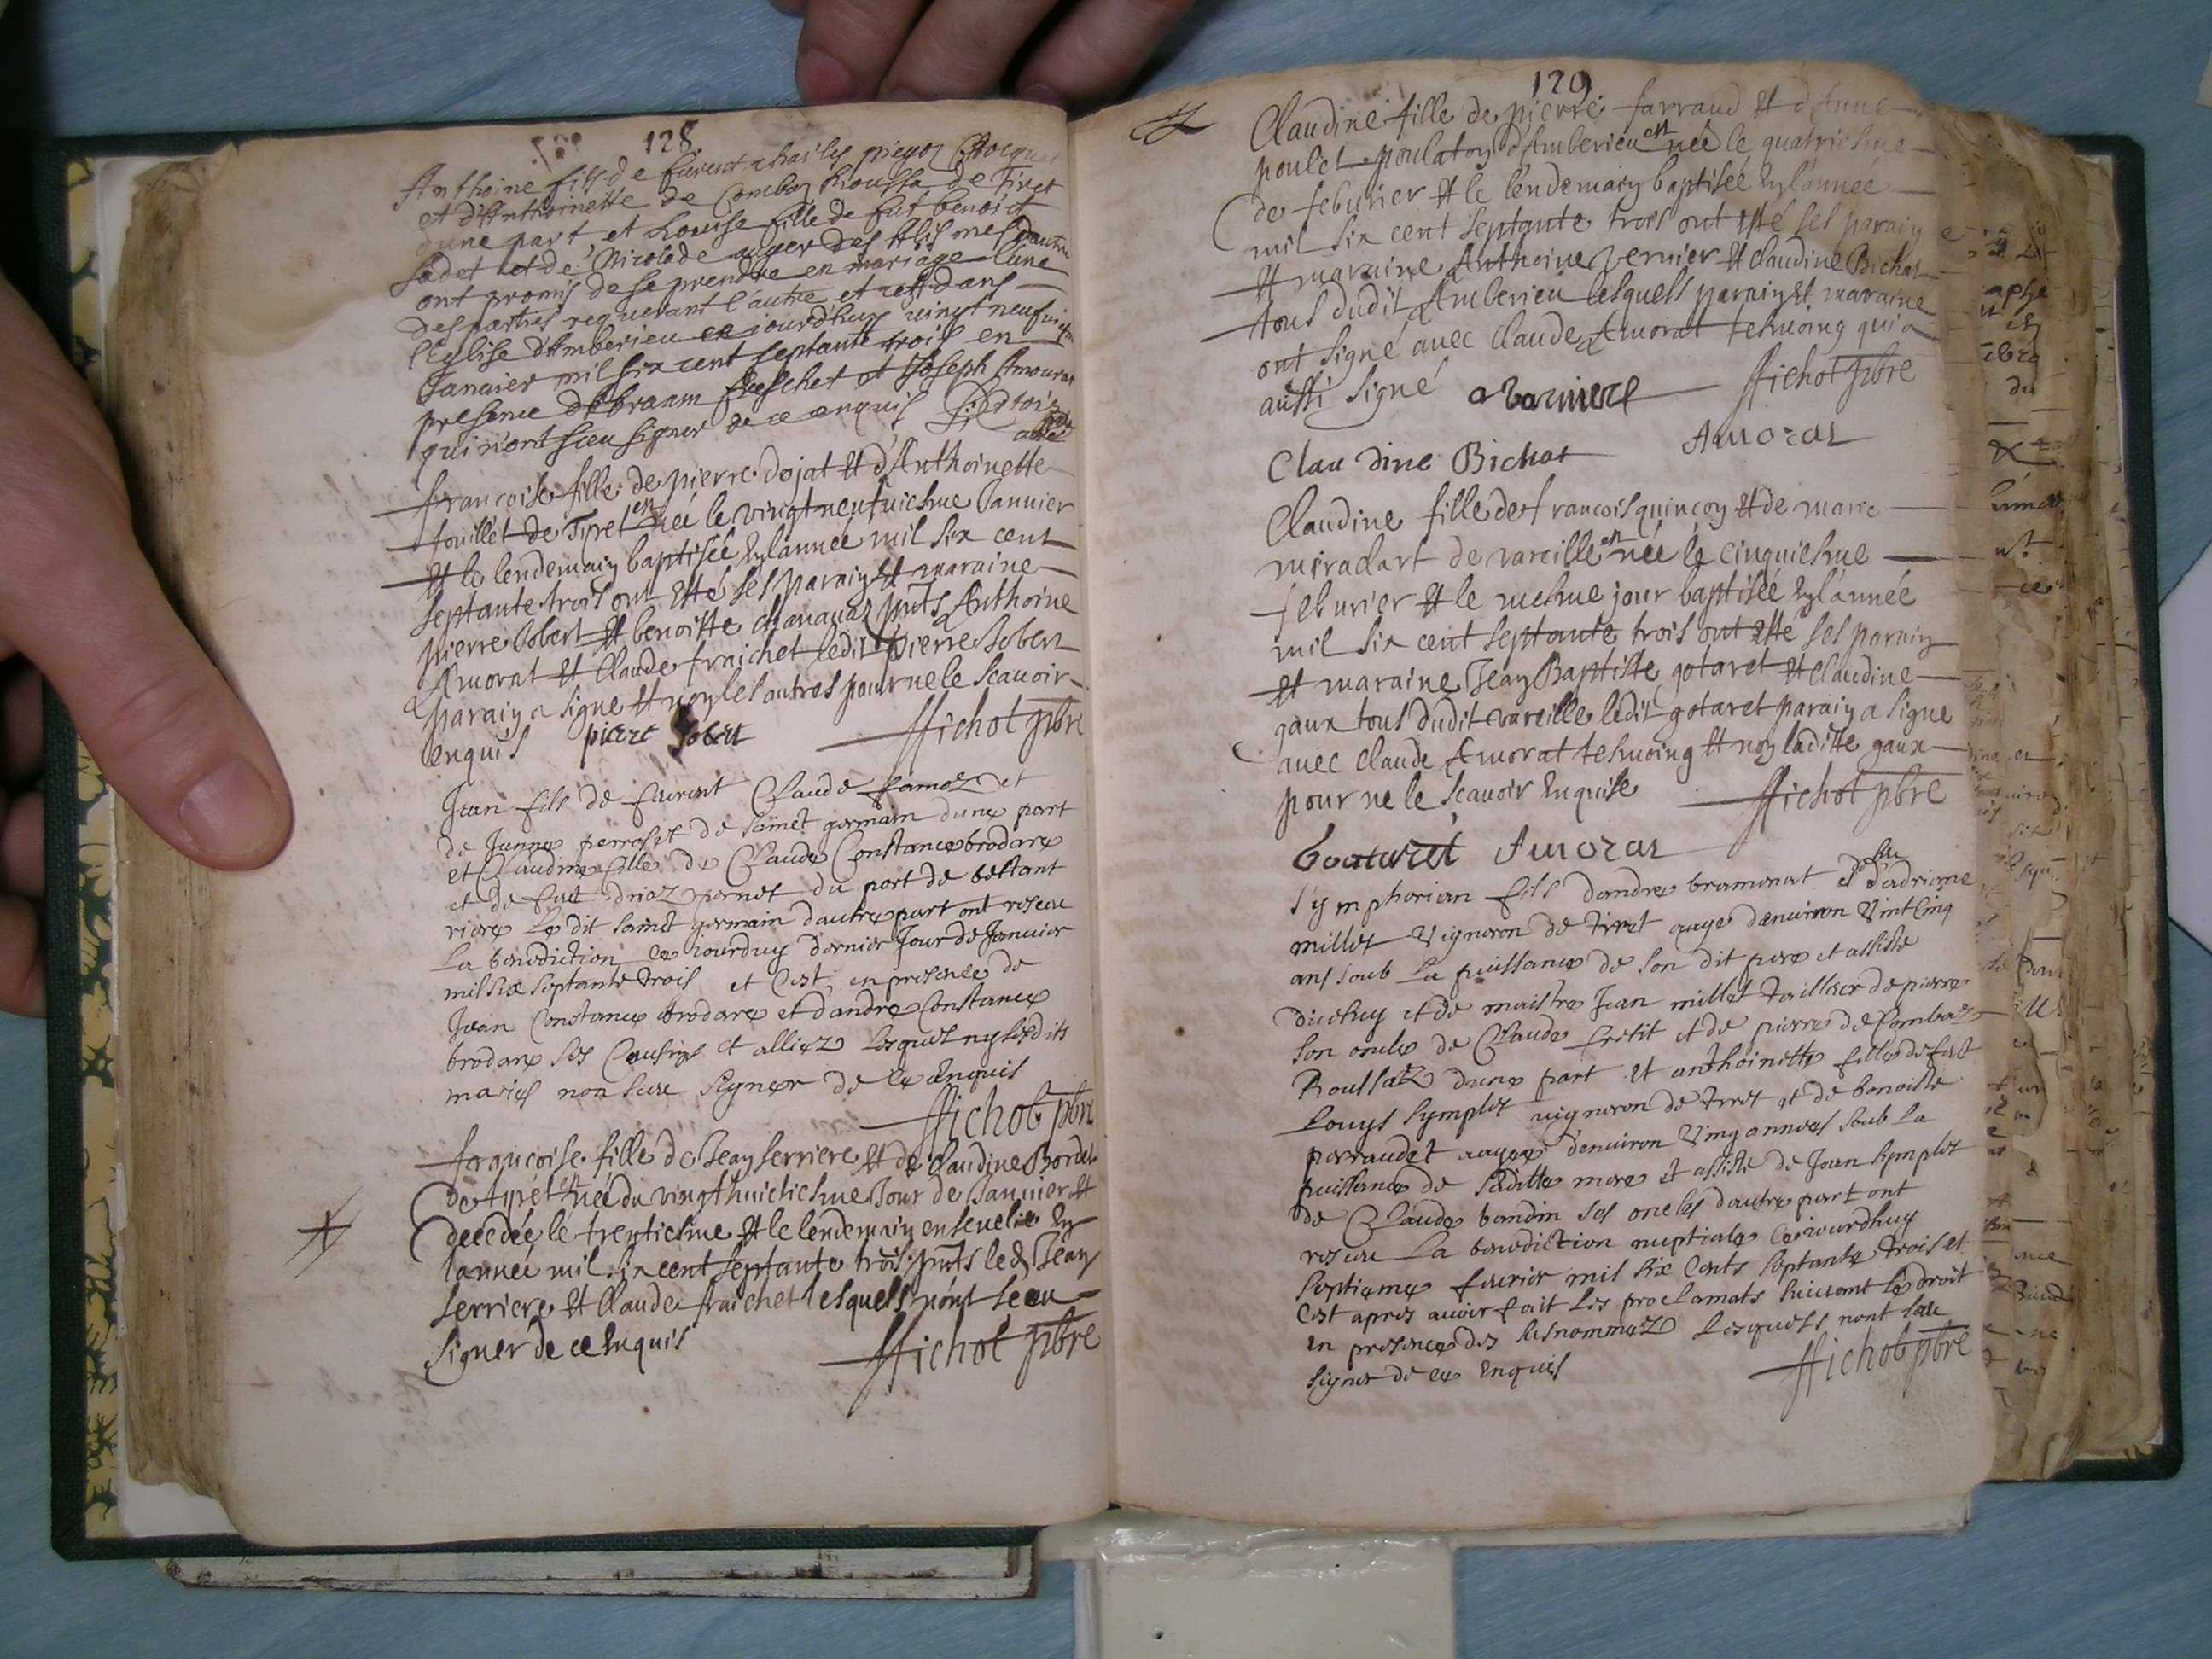 128
Anthoine fils de furent charles pieyoz
et d'Anthoinette de Comboz Roussa de Tiret
d'une part et Louise fille de fut benoict
sadet et de Nicolade auger des Alismes dautre
ont promis de se prendre en mariage lune
des parties requerant l'autre et ce dans
l'Eglise d'Amberieu ce jourdhuy vingt neufuiesme
Januier mil six cent septante trois en
presence d'Abraam fraischet et Joseph Amourat
qui n'ont sceu signer de ce enquis
francoise fille de pierre dojat et d'Anthoinette
touillet de Tyret est née le vingt neufuiesme Januier
et le lendemain baptisée En l'année mil six cent
septante trois ont esté ses parain et maraine
pierre Jobert et benoitte chauanaz pnts Anthoine
Amorat et Claude fraichet ledit pierre Jobert
parain a signe et non les autres pour ne le scauoir
enquis pierre Jobert Michot pbre
Jean fils de furent Claude Ramoz et
de Janne perroset de sainct germain dune part
et Claudine fille de Claude Constance brodare
et de fut driaz pornet du port de bettant
riere le dit sainct germain dautre part ont reseu
la benediction ce iourdhuy dernier Jour de Januier
mil six septante trois et cest en presence de
Jean Constance brodare et dandre Constance
brodare ses Cousins et alliez lesquez ny lesdits
mariés non seeu signer de ce Enquis
Michot pbre
francoise fille de Jean serriere et de claudine Bordet
de tyret est née du vingt huictiesme Jour de Januier et
decedée le trentiesme et le lendemain enseuelie En
l'année mil six cent septante trois pnts led Jean
serriere et Claude fraichet lesquels n'ont sceu
signer de ce Enquis Michot pbre
129
Claudine fille de pierre farraud et d'Anne
poulet poulaton d'Amberieu est née le quatriesme
de feburier et le lendemain baptisée En l'année
mil six cent septante trois ont esté ses parain
et maraine Anthoine vernier et claudine Bichat
tous dudit Amberieu lesquels parain et maraine
ont signé auec Claude Amorat tesmoing qui a
aussi signé Michot pbre
Claudine Bichat Amorat
Claudine fille de francois quinçon et de marie
miradart de vareille est née le cinquiesme
feburier et le mesme jour baptisée En l'année
mil six cent septante trois ont esté ses parain
et maraine Jean Baptiste gotaret et claudine
gaux tous dudit vareille ledit gotaret parain a signe
auec claude Amorat tesmoing et non laditte gaux
pour ne le scauoir Enquise Michot pbre
Goutaret Amorat
Symphorian fils dandre bramerat et de fu d'adriane
millet Vigneron de tirret aagé denuiron Vint Cinq
ans soub la puissance de son dit pere et assiste
diceluy et de maistre Jean millet tailleur de pierre
son oncle de Claude fretit et de pierre de Combaz
Roussaz dune part et anthoinette fille de fut
Louys symplot vigneron de tirret et de benoiste
perraudet aagee denuiron Ving annees soub la
puissance de saditte mere et assiste de Jean symplot
de Claude bandin ses oncles dautre part ont
reseu la benediction nuptiale ce iourdhuy
septieme feurier mil six Cents septante trois et
Cest apres auoir fait les proclamats suiuant le droit
en presence des susnommez lesquels nont seeu
signer de ce Enquis Michot pbre